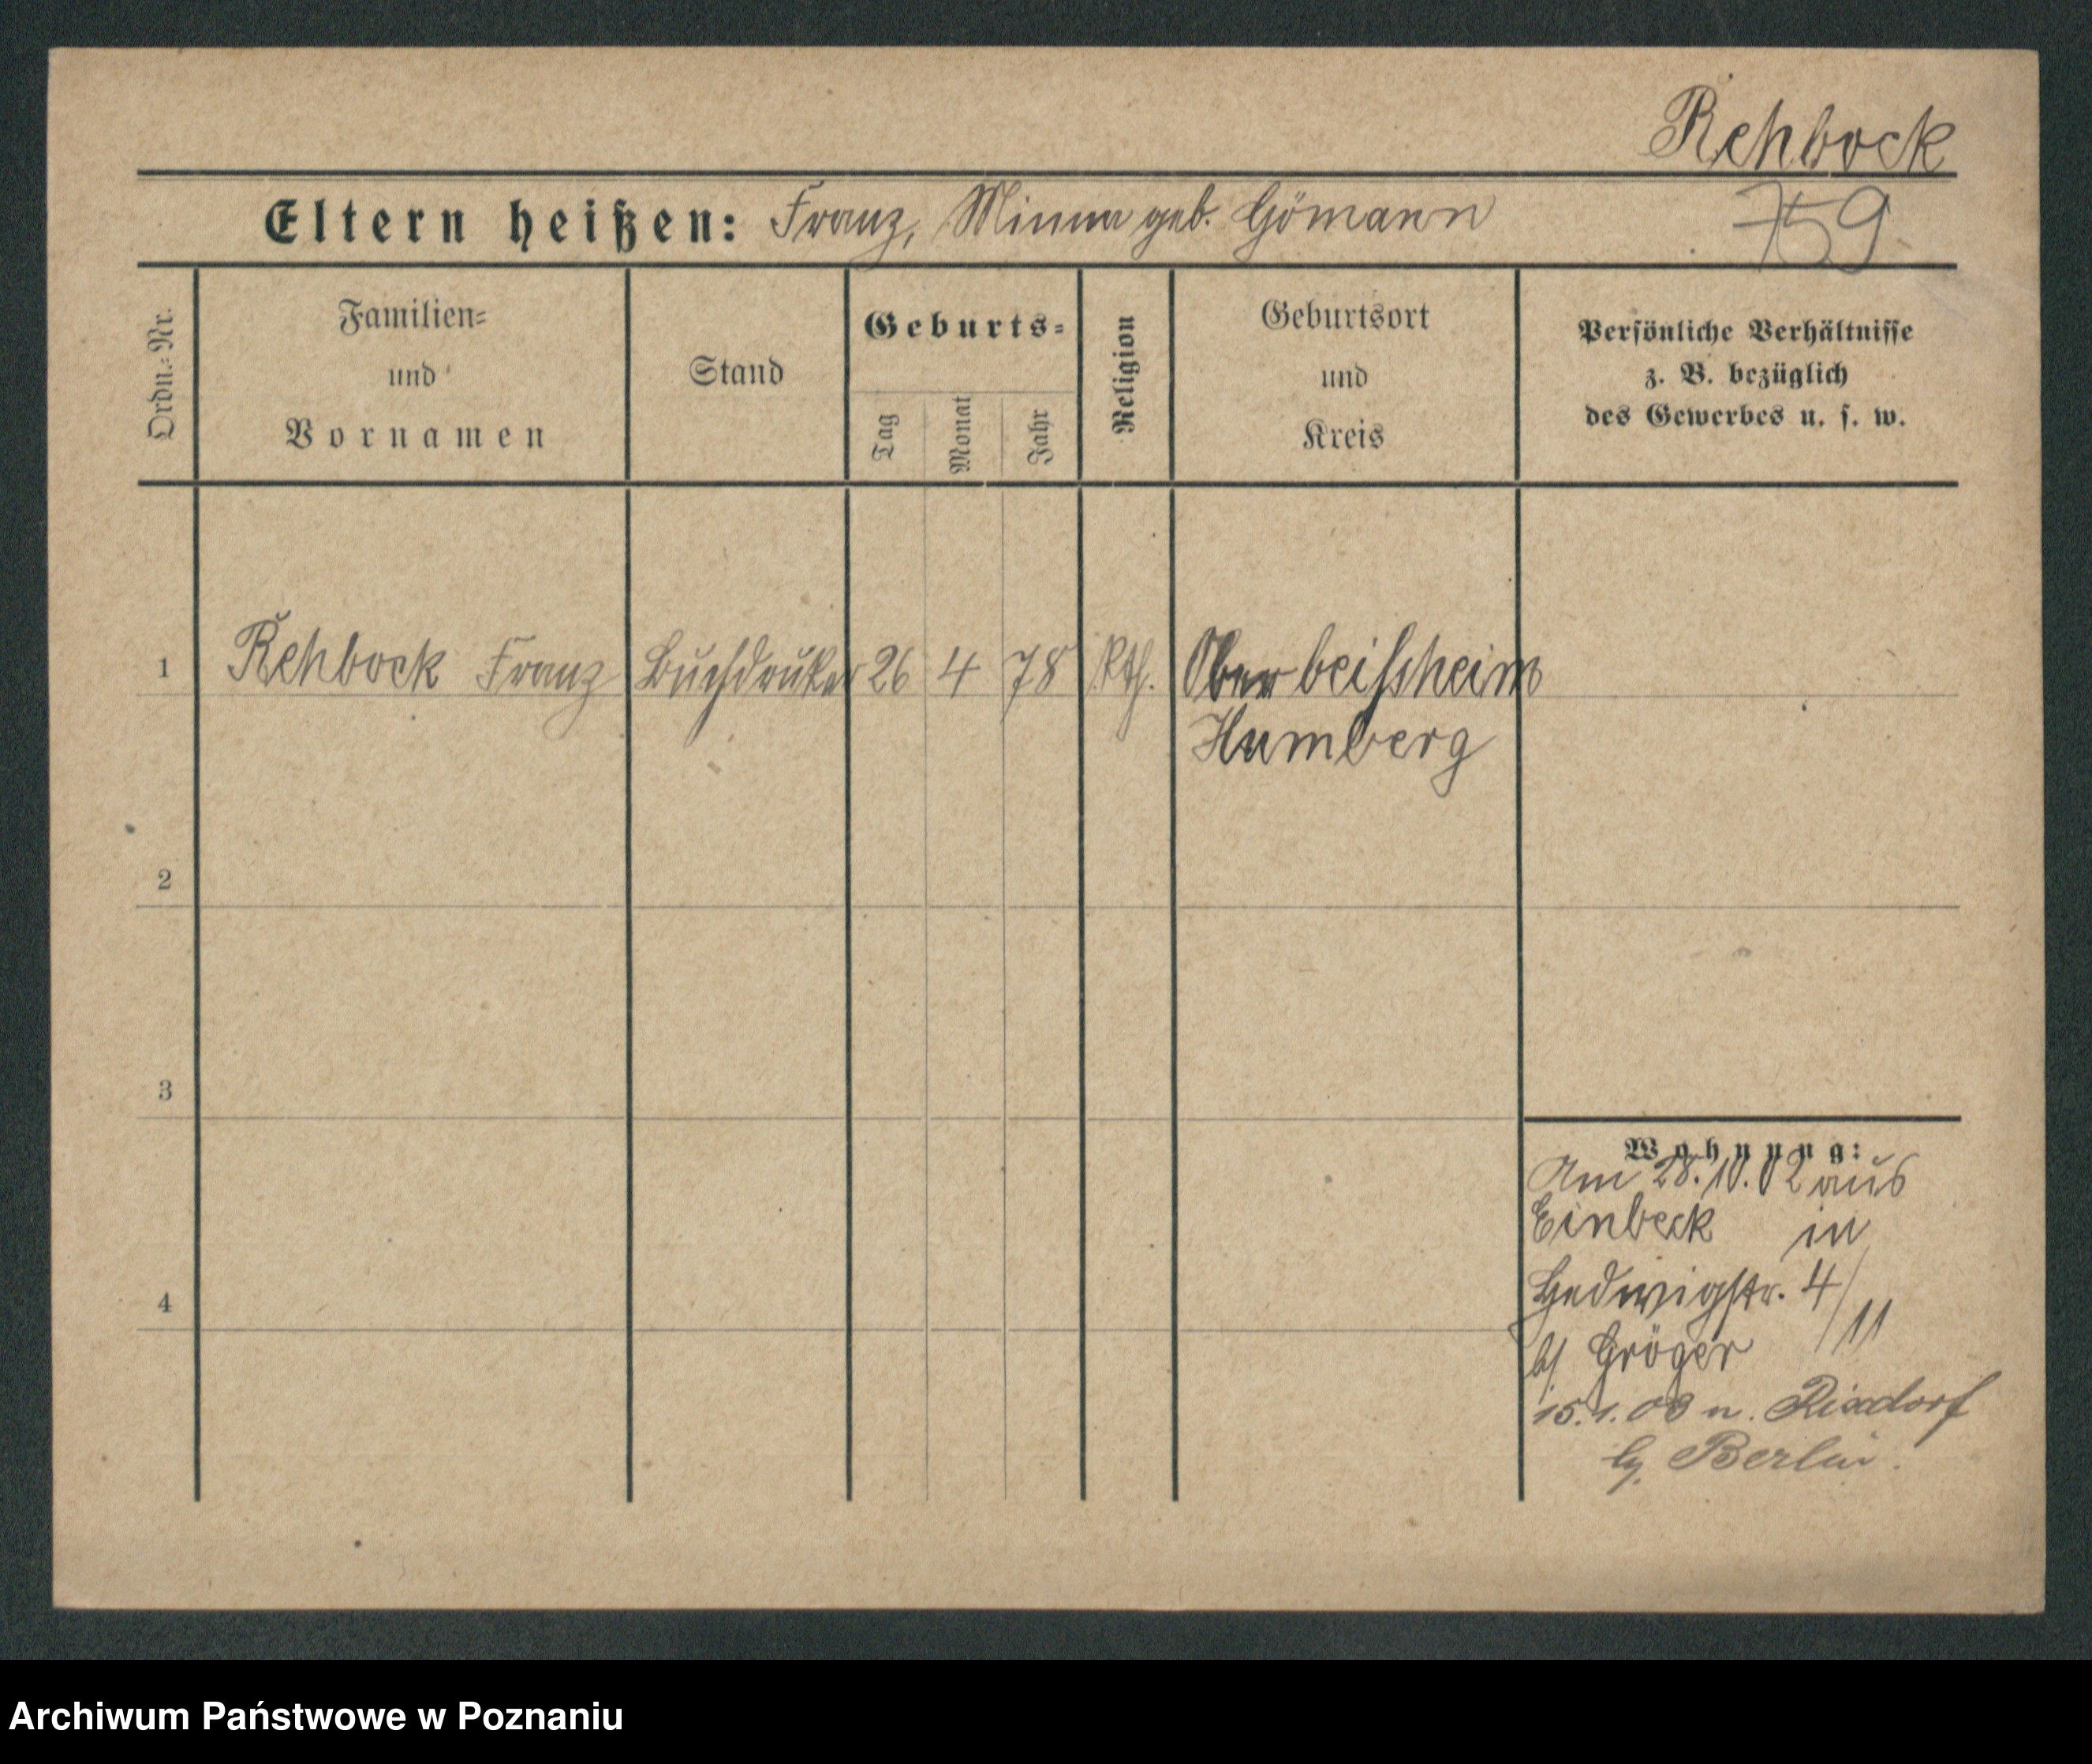 Rehbock
Eltern heißen: Franz, Minna geb. Gömann
759
Ordn.-Nr.
Familien-
und
Vornamen
Stand
Geburts-
Tag
Monat
Jahr
Religion
Geburtsort
und
Kreis
Persönliche Verhältnisse
z. B. bezüglich
des Gewerbes u. s. w.
1 Rehbock Franz Buchdruker 26 4 78 Kth. Oberbeißheim
Humberg
2
3
4
Wohnung:
Am 28.10.02 aus
Einbeck in
Hedwigstr. 4/11
b/ Gröger
15.1.03 n. Rixdorf
by. Berlin.
Archiwum Państwowe w Poznaniu